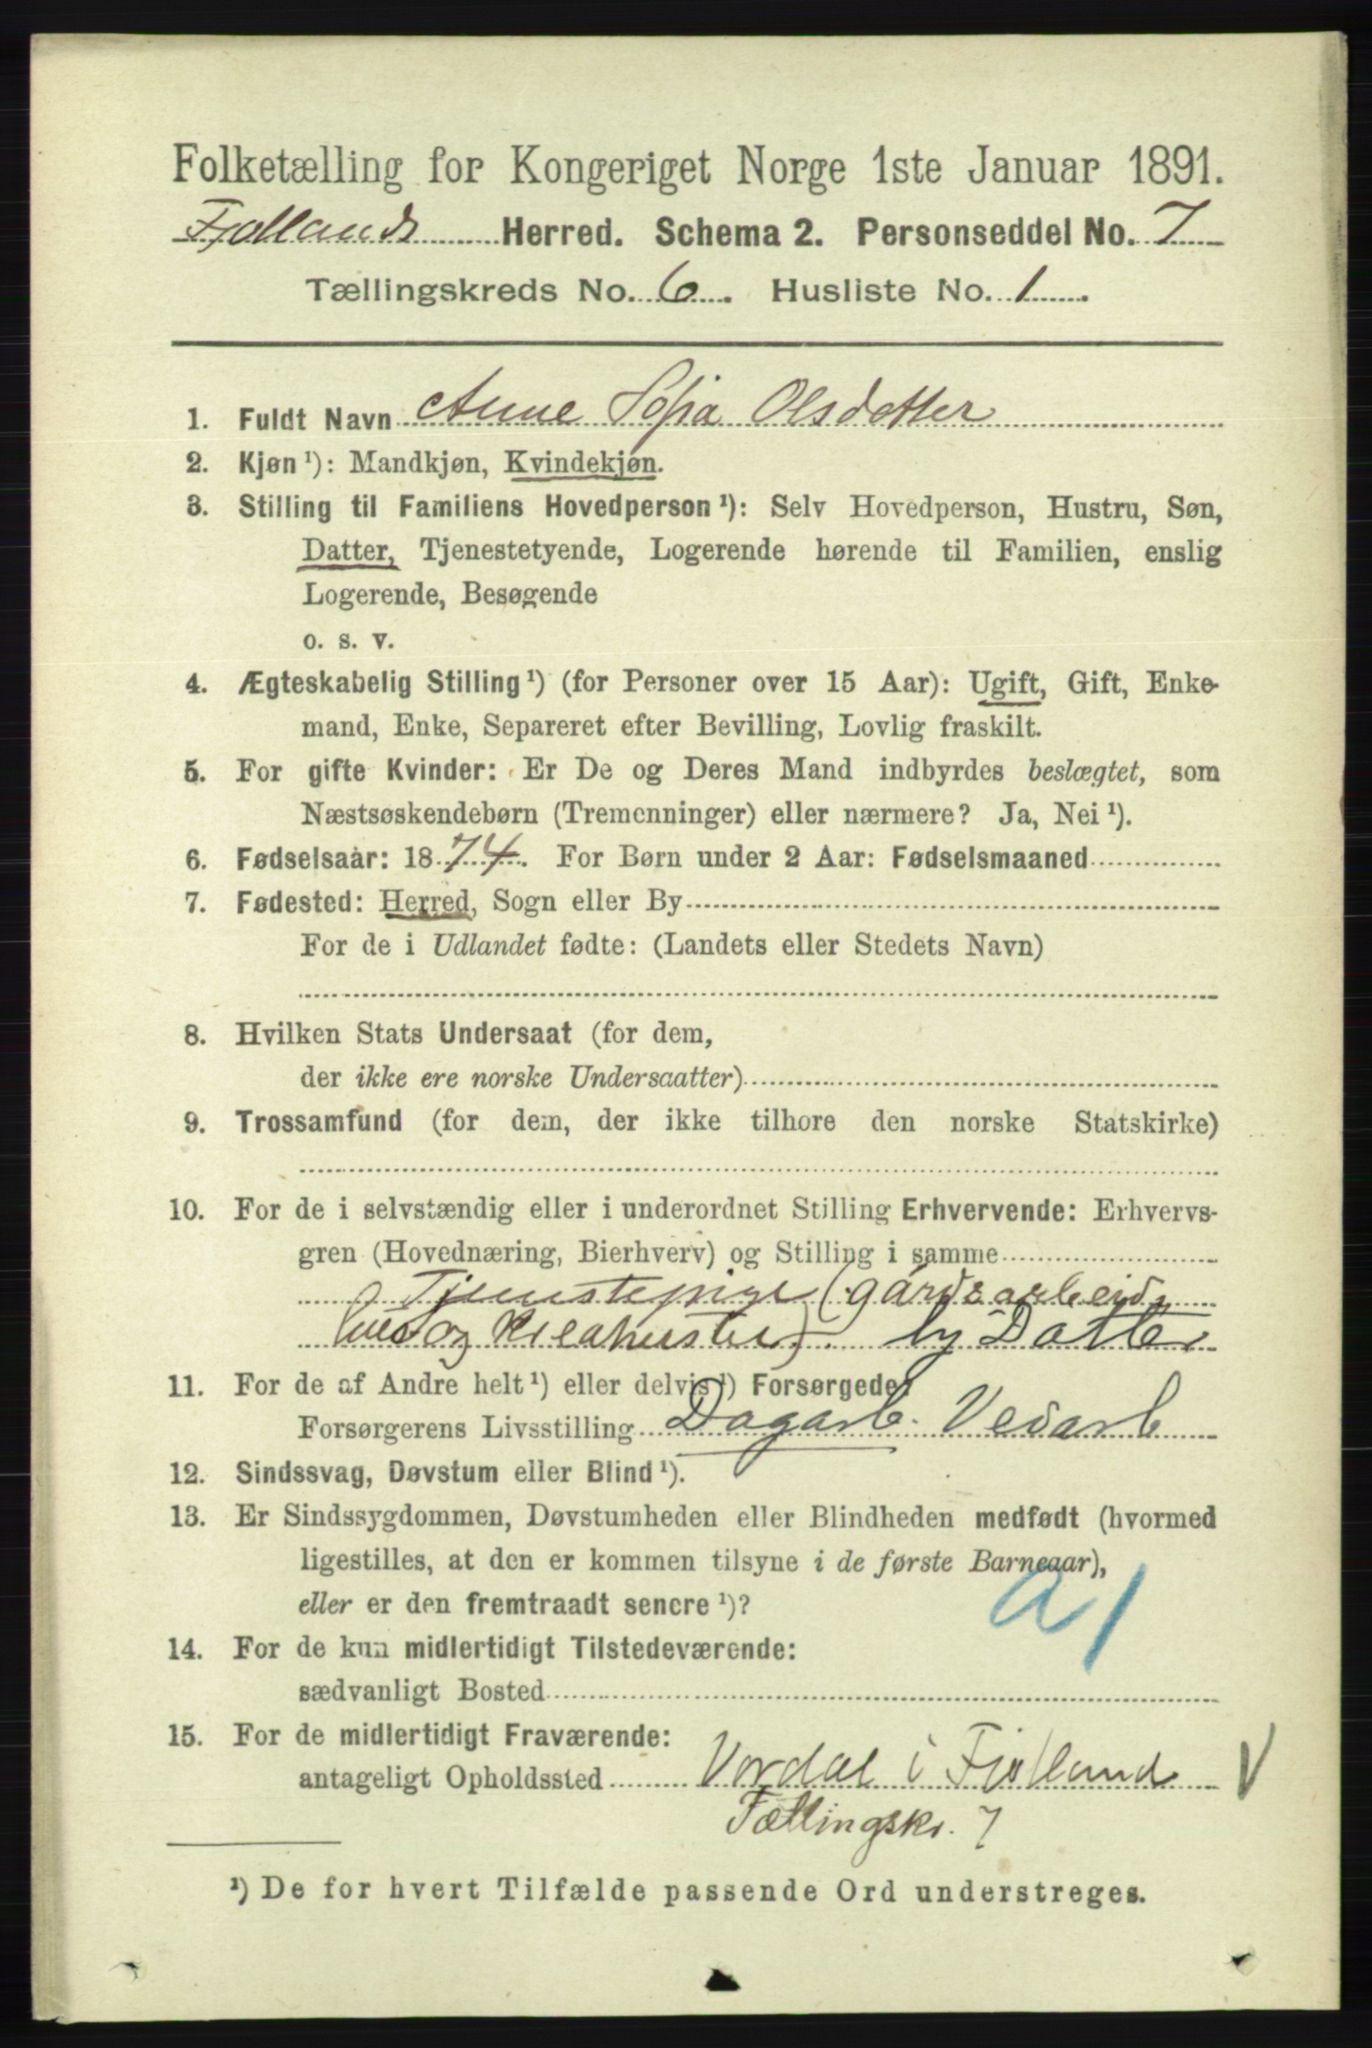 Folketælling for Kongeriget Norge 1ste Januar 1891.
Fjotlands Herred. Schema 2. Personseddel No. 7
Tællingskreds No. 6. Husliste No. 1.
1. Fuldt Navn Anne Sofia Olsdatter
2. Kjøn ¹): Mandkjøn, Kvindekjøn.
3. Stilling til Familiens Hovedperson ¹): Selv Hovedperson, Hustru, Søn,
Datter, Tjenestetyende, Logerende hørende til Familien, enslig
Logerende, Besøgende
o. s. v.
4. Ægteskabelig Stilling ¹) (for Personer over 15 Aar): Ugift, Gift, Enke-
mand, Enke, Separeret efter Bevilling, Lovlig fraskilt.
5. For gifte Kvinder: Er De og Deres Mand indbyrdes beslægtet, som
Næstsøskendebørn (Tremenninger) eller nærmere? Ja, Nei ¹).
6. Fødselsaar: 1874. For Børn under 2 Aar: Fødselsmaaned
7. Fødested: Herred, Sogn eller By
For de i Udlandet fødte: (Landets eller Stedets Navn)
8. Hvilken Stats Undersaat (for dem,
der ikke ere norske Undersaatter)
9. Trossamfund (for dem, der ikke tilhore den norske Statskirke)
10. For de i selvstændig eller i underordnet Stilling Erhvervende: Erhvervs-
gren (Hovednæring, Bierhverv) og Stilling i samme
Tjenestepige (gårdsarbeide
og Kreaturstel) Datter
11. For de af Andre helt ¹) eller delvis ¹) Forsørgede:
Forsørgerens Livsstilling Dagarb. Vedarb
12. Sindssvag, Døvstum eller Blind ¹).
13. Er Sindssygdommen, Døvstumheden eller Blindheden medfødt (hvormed
ligestilles, at den er kommen tilsyne i de første Barneaar),
eller er den fremtraadt senere ¹)?
14. For de kun midlertidigt Tilstedeværende:
sædvanligt Bosted
15. For de midlertidigt Fraværende:
antageligt Opholdssted Vordal i Fjotland V
Tællingskr. 7
¹) De for hvert Tilfælde passende Ord understreges.